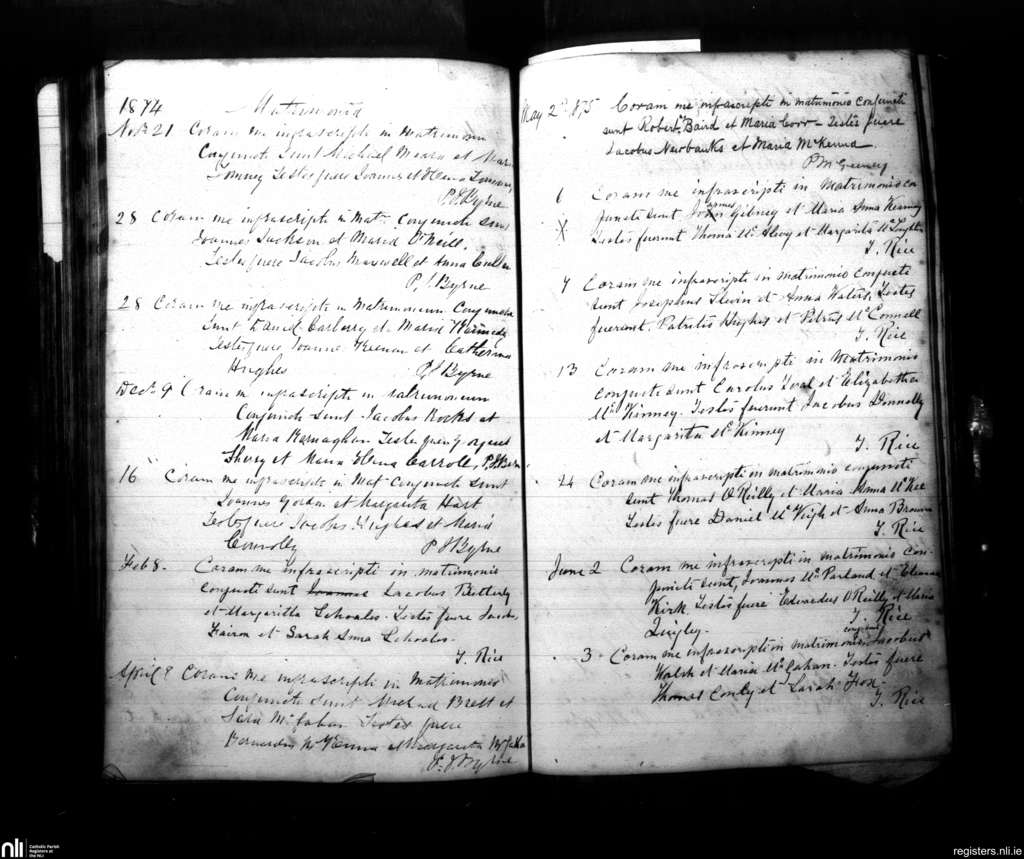 1874 Matrimonia
Nov. 21 Coram me infrascripti in Matrimonium
Conjuncti sunt Michael et
Testes fuere Joannes et
P J Byrne
28 Coram me infrascripti in Mat. Conjuncti sunt
Joannes Jackson et Maria O'Neill.
Testes fuere Jacobus Maxwell et Anna
P. J Byrne
28 Coram me infrascripti in Matrimonium Conjuncti
sunt David Carberry et Maria
Testes fuere Joannes Keenan et Catherina
Hughes P J Byrne
Dec. 9 Coram me infrascripti in matrimonium
Conjuncti sunt Jacobus Rooks et
Maria Kernaghan Testes fuere
et Maria Elena Carroll, P. J Byrne
16 Coram me infrascripti in Mat Conjuncti sunt
Joannes Gordon et Margarita Hart
Testes fuere Jacobus Hughes et Maria
Connolly P J Byrne
Feb 8. Coram me infrascripti in matrimonio
conjuncti sunt Joannes Jacobus Butterly
et Margaritta Scholes. Testes fuere
et Sarah Anna Scholes.
T. Rice
April 8 Coram me infrascripti in Matrimonio
Conjuncti sunt Michael Brett et
McCahan Testes fuere
Bernardus McKenna et Margarita
P. J. Byrne
May 2d 1875 Coram me infrascripti in matrimonio conjuncti
sunt Robert Baird et Maria Corr - Testes fuere
Jacobus Newbanks et Maria McKenna
P McGeeney
6 Coram me infrascripti in Matrimonio con
juncti sunt Gibney et Maria Anna Kearney
X Testes fuerunt Thoma Mc Ilroy et Margarita
T. Rice
7 Coram me infrascripti in matrimonio conjuncti
sunt Josephus Slevin et Anna Waters, Testes
fuerunt Patritus Hughes et Petrus McConnell
T. Rice
13 Coram me infrascripti in matrimonio
conjuncti sunt Carolus et Elizabetha
McKinney. Testes fuerunt Jacobus Donnelly
et Margarita McKinney
T. Rice
24 Coram me infrascripti in matrimonio conjuncti
sunt Thomas O'Reilly et Maria Anna McKee
Testes fuere Daniel McVeigh et Anna Browne
T. Rice
June 2 Coram me infrascripti in matrimonio con-
juncti sunt, Joannes McParland et
Kirk Testes fuere Edwardus O'Reilly et Maria
Quigley. T. Rice
conjuncti
3 Coram me infrascripti in matrimonio Jacobus
Walsh et Maria McCahan. Testes fuere
Thomas Conly et Sarah Fox.
T. Rice
nli Catholic Parish
Registers at
the NLI
registers.nli.ie